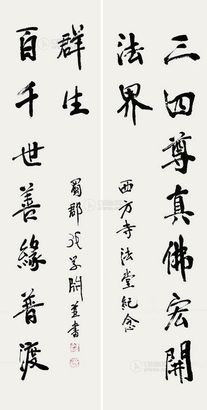 三四尊真佛宏開
法界
西方寺法堂紀念
百千世善緣普渡
群生
蜀郡張學關並書